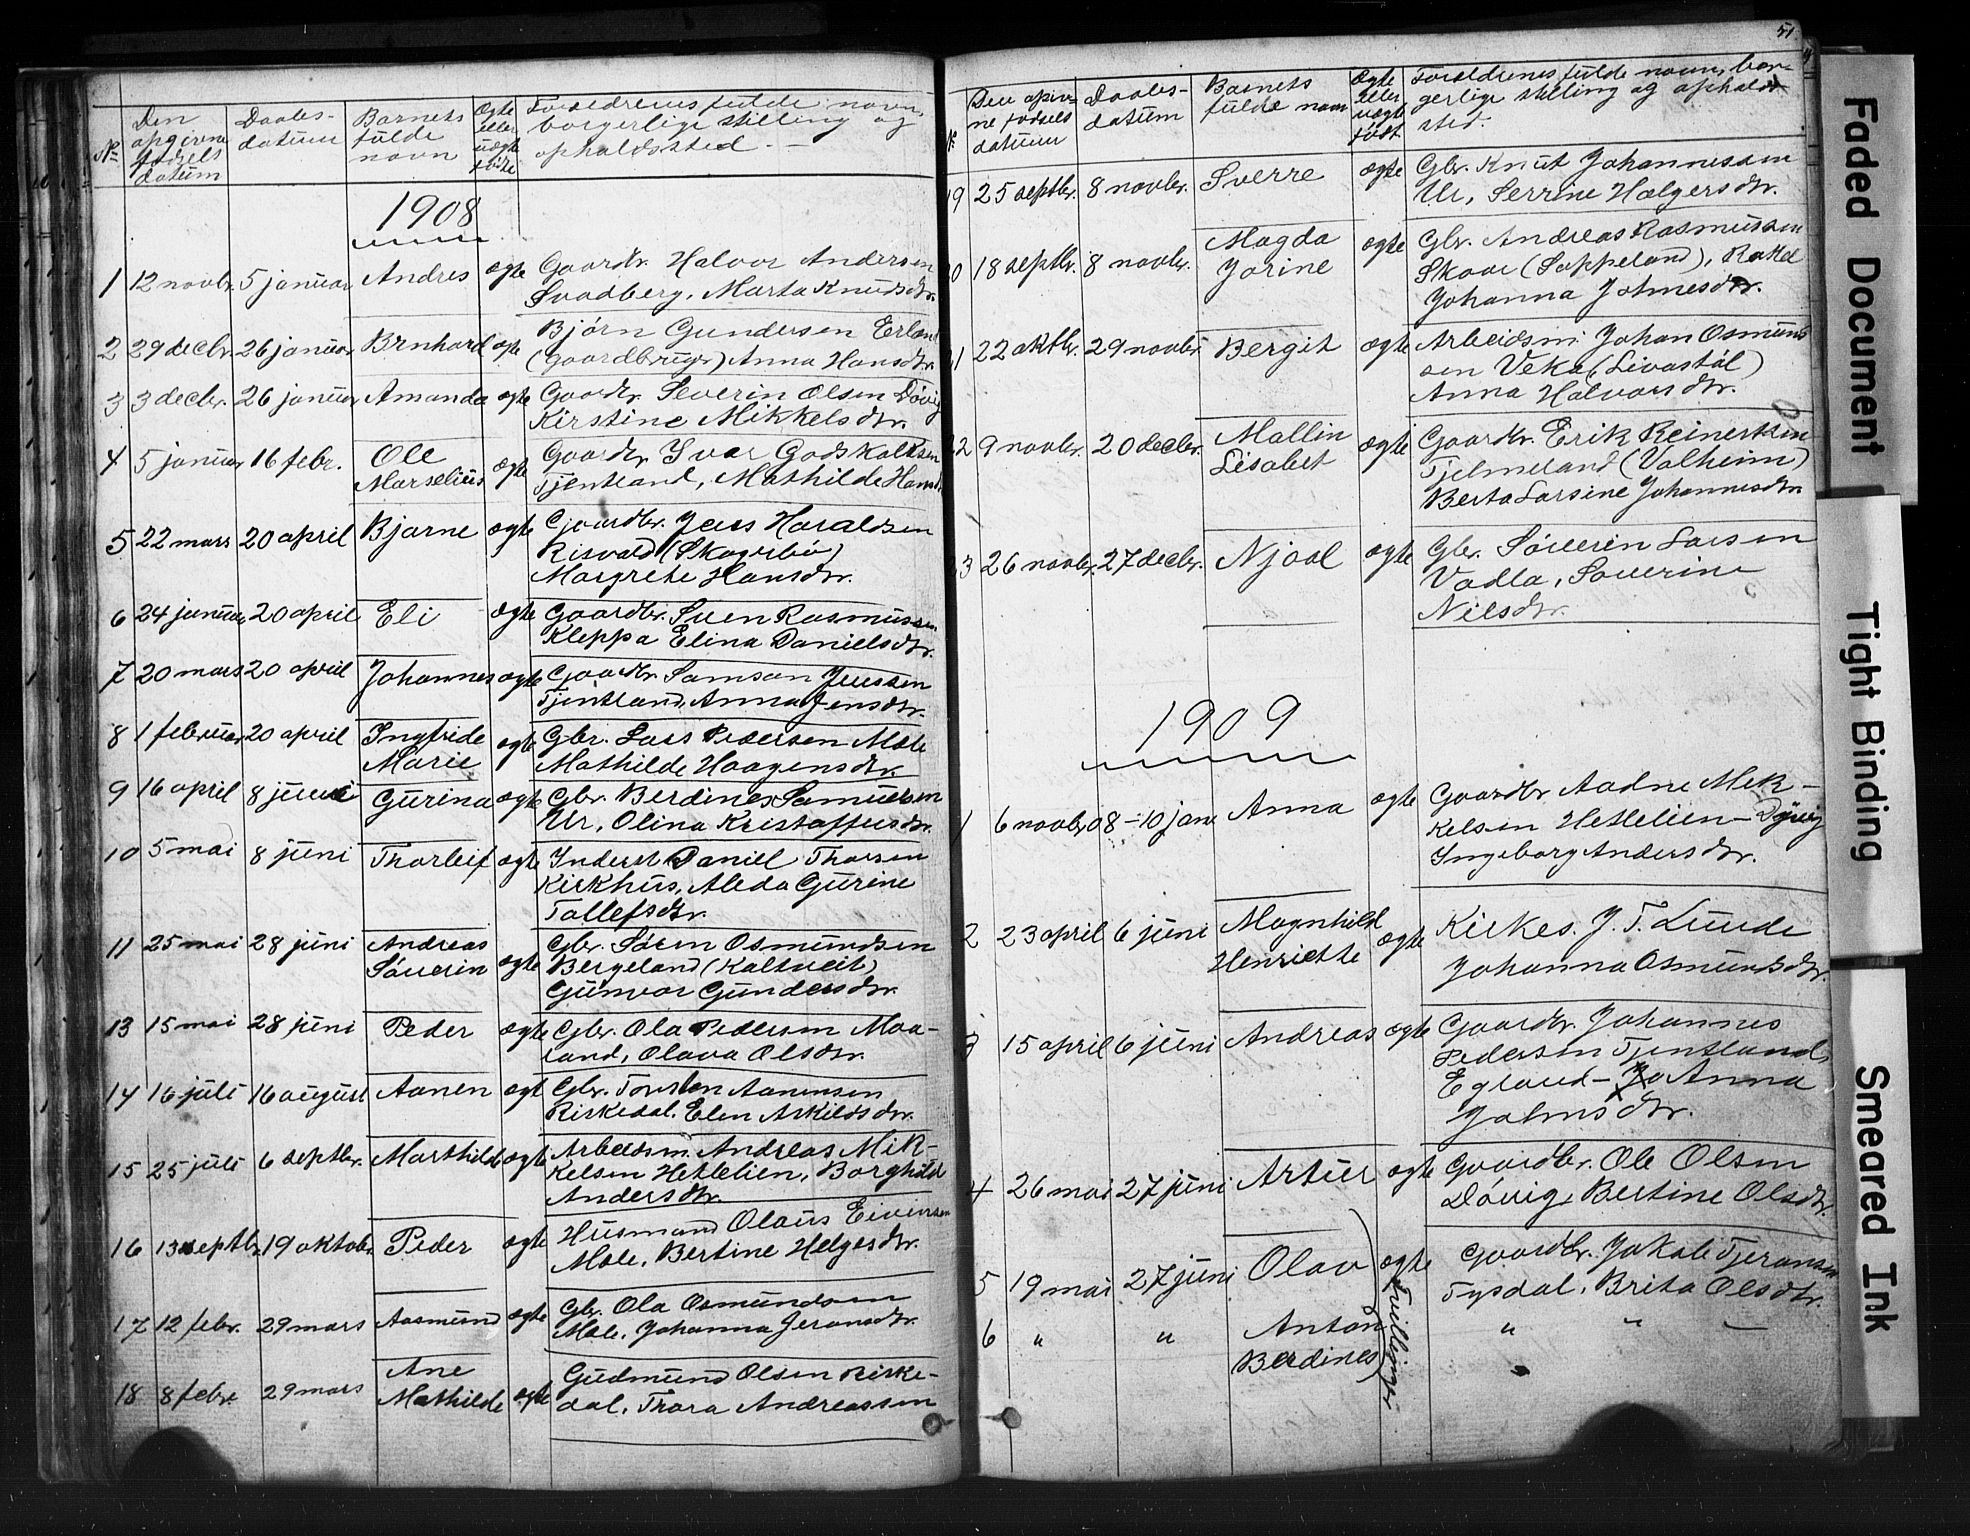 No
Den opgivne fødsels datum
Daabs-datum
Barnets fulde navn
Ægte eller uægte født
Forældrenes fulde navn, borgerlige stilling og opholdssted. —
1908
1 12 novbr. 5 januar Andres ægte Gaardbr. Halvor Andersen
Svadberg, Marta Knudsdtr.
2 29 decbr. 26 januar Brnhard ægte Bjørn Gundersen Erland
(gaardbruger) Anna Hansdtr.
3 3 decbr. 26 januar Amanda ægte Gaardbr. Severin Olsen Døvig
Kirstine Mikkelsdtr.
4 5 januar 16 febr. Ole Marselius ægte Gaardbr. Ivar Godskalksen
Tjentland, Mathilde Hansd.
5 22 mars 20 april Bjarne ægte Gaardbr. Jens Haraldsen
Risvold (Skogerbø)
Margrete Hansdtr.
6 24 januar 20 april Eli ægte Gaardbr. Sven Rasmussen
Kleppa Elina Danielsdtr.
7 20 mars 20 april Johannes ægte Gaardbr. Samson Jenssen
Tjentland, Anna Jensdtr.
8 1 februar 20 april Ingfride Marie ægte Gbr. Lars Pedersen Mæle
Mathilde Haagensdtr.
9 16 april 8 juni Gurina ægte Gbr. Berdines Samuelsen
Ur, Olina Kristoffersdtr.
10 5 mai 8 juni Thorleif ægte Inderst Daniel Thorsen
Kirkhus, Aleda Gurine
Tollefsdtr.
11 25 mai 28 juni Andreas Søverin ægte Gbr. Søren Osmundsen
Bergeland (Kaltveit)
Gunvor Gundersdtr.
13 15 mai 28 juni Peder ægte Gbr. Ola Pedersen Maa-
land, Olava Olsdtr.
14 16 juli 16 august Aanen ægt Gbr. Torsten Aanensen
Riskedal. Elen Askildsdtr.
15 25 juli 6 septbr. Marthilde ægte Arbeidsm. Andreas Mik-
kelsen Hetlelien, Borghild
Andersdtr.
16 13 septbr. 19 oktober Peder ægte Husmand Olaus Eivinsen
Mæle, Bertine Helgesdtr.
17 12 febr. 29 mars Aasmund ægte Gbr. Ola Osmundsen
Mæle, Johanna Jeransdtr.
18 8 febr. 29 mars Ane Mathilde ægte Gudmund Olsen Riske-
dal, Thora Andreassen
51
No
Den opgivne fødsels datum
Daabs-datum
Barnets fulde navn
Ægte eller uægte født
Forældrenes fulde navn, bor-
gerlige stilling og opholds
sted.
19 25 septbr. 8 novbr. Sverre ægte Gbr. Knut Johannessen
Ur, Serrine Hælgersdtr.
20 18 septbr. 8 novbr. Magda Jorine ægte Gbr. Andreas Rasmussen
Skaar (Sappeland), Rakel
Johanna Jolmesdtr.
21 22 oktbr. 29 novbr. Bergit ægte Arbeidsm. Johan Osmund
sen Veka (Livastøl)
Anna Halvorsdtr.
22 9 novbr. 20 decbr. Mallin Lisabet ægte Gaardbr. Erik Reinertsen
Tjelmeland (Valheim)
Berta Larsine Johannesdtr.
23 26 novbr. 27 decbr. Njaal ægte Gbr. Søverin Larsen
Vadla, Saverine
Nilsdtr.
1909
1 6 novbr 08 – 10 jan Anna ægte Gaardbr Aadne Mik-
kelsen Hetlelien – Døvig
Ingeborg Andersdtr.
2 23 april 6 juni Magnhild Henriette ægte Kirkes. J. T. Lunde
Johanna Osmundsdtr.
3 15 april 6 juni Andreas ægte Gaardbr. Johannes
Pedersen Tjentland,
Egland – Jo Anna
Jolmsdtr.
4 26 mai 27 juni Artur ægte Gaardbr. Ole Olsen
Døvig, Bertine Olsdtr.
5 19 mai 27 juni Olav ægte Gaardbr. Jakob Tjeransen
Tysdal, Brita Olsdtr.
6 " " Anton Berdines " " —
Tvillinger
Faded Document
Tight Binding
Smeared Ink